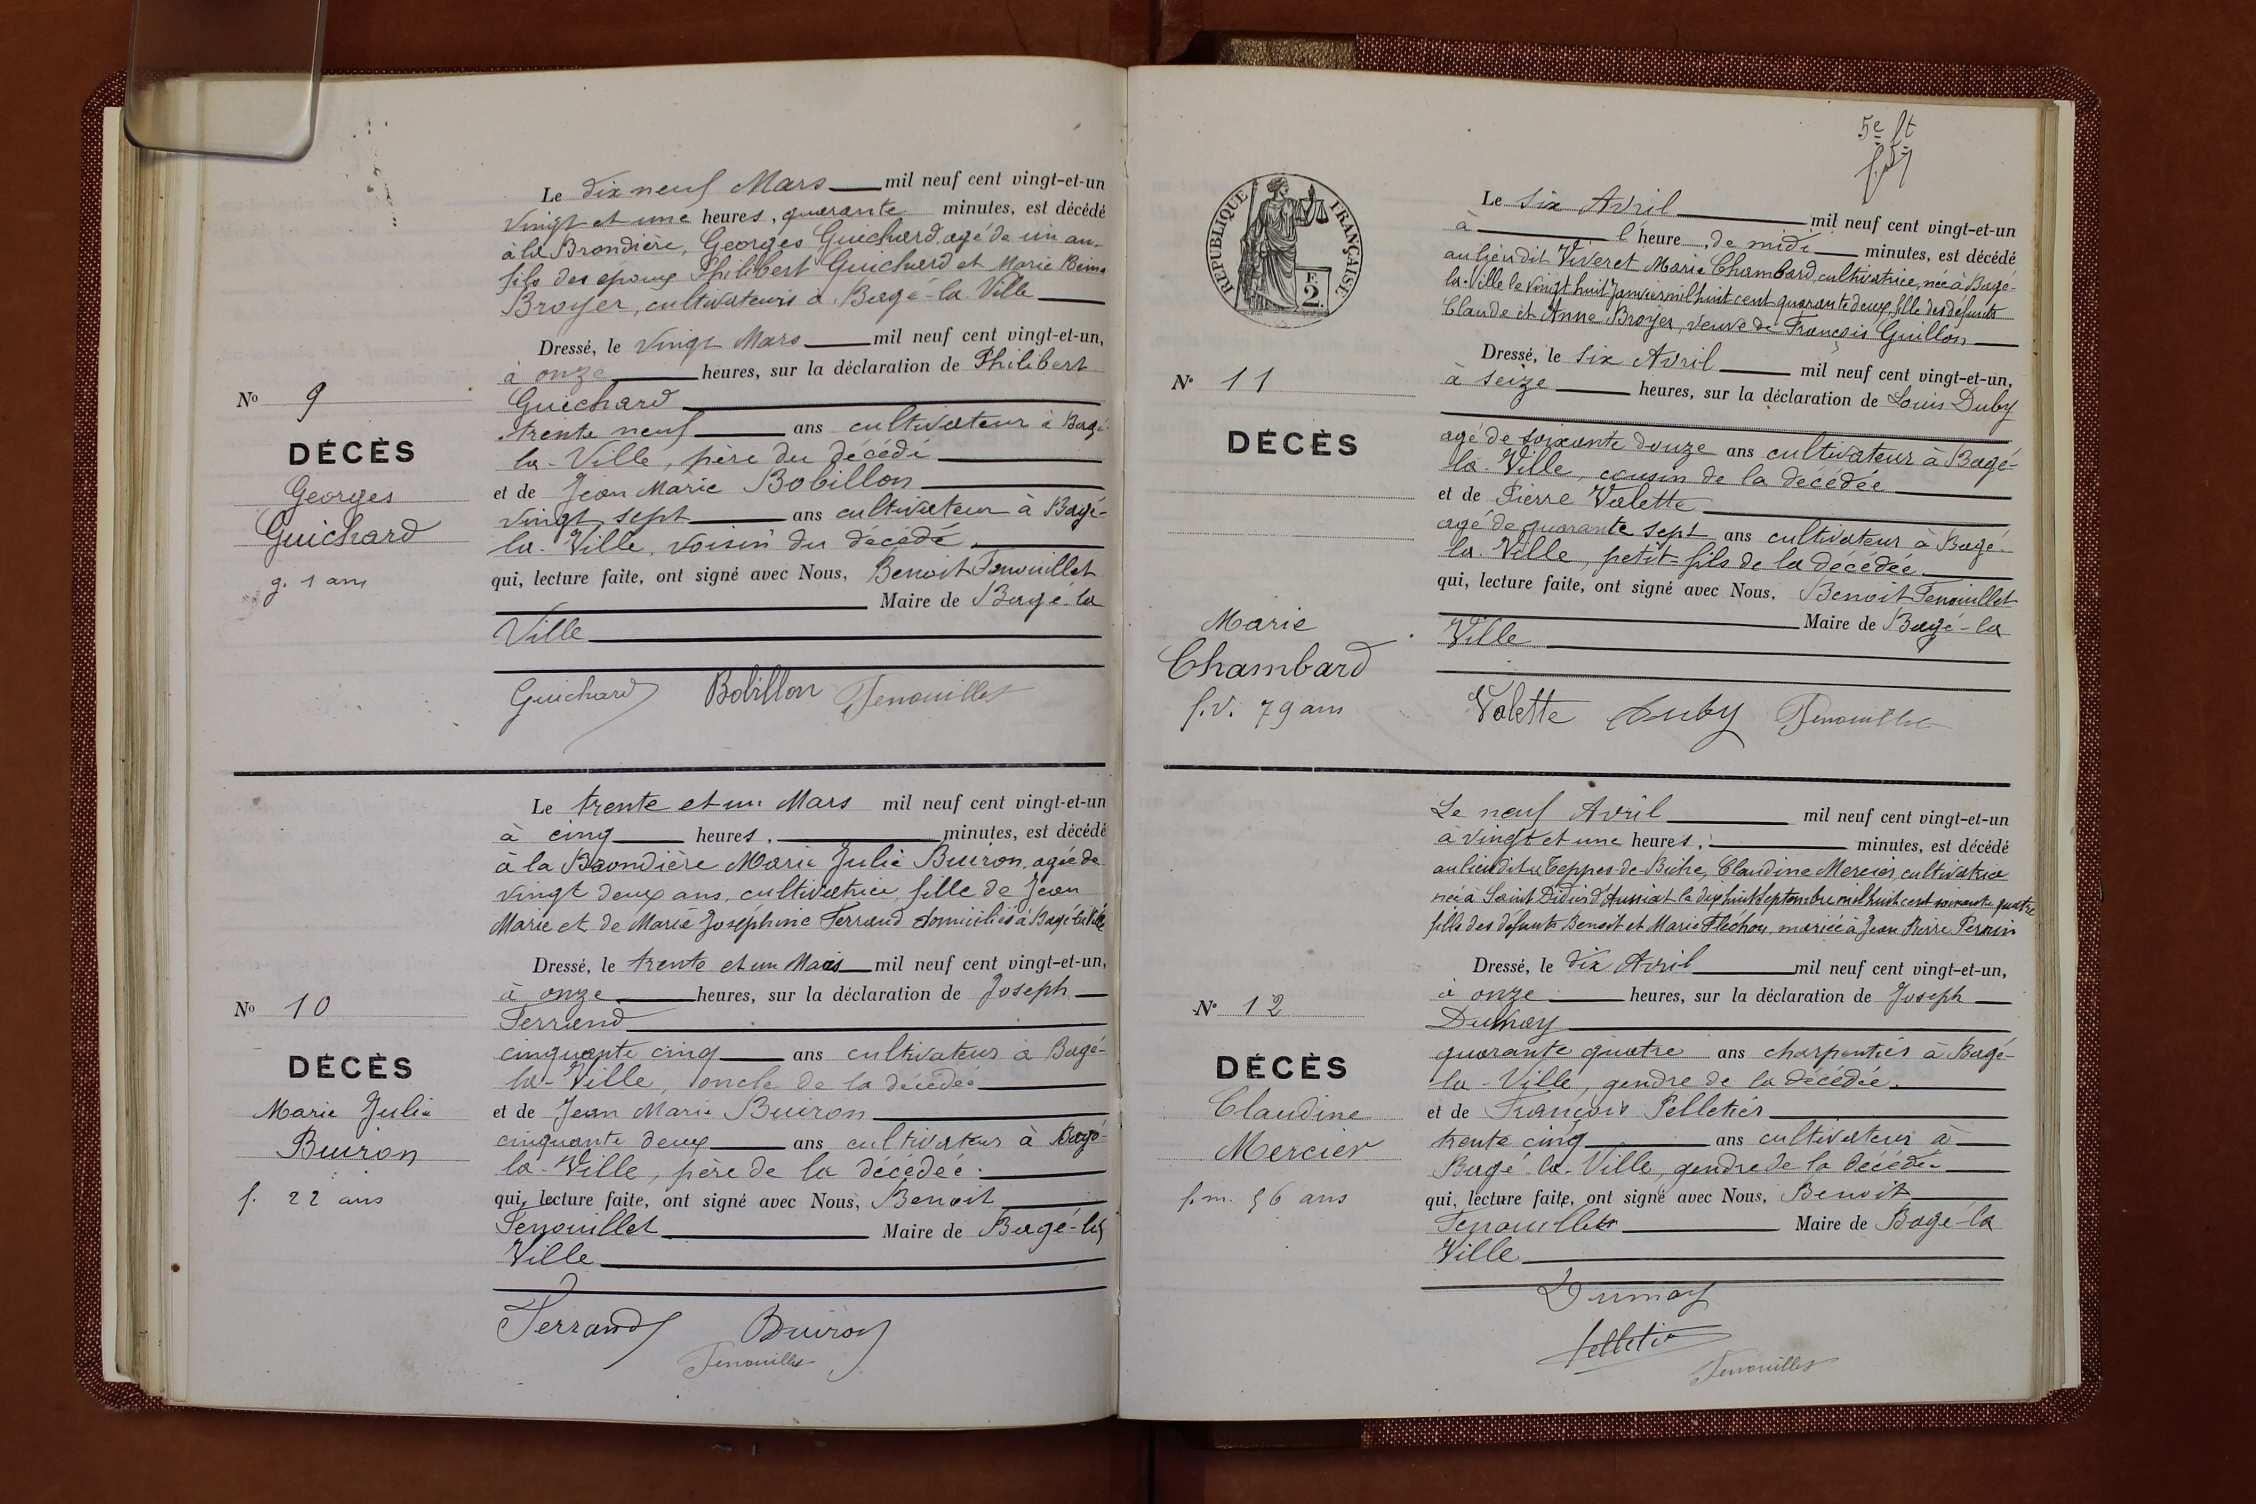 Le dix neuf Mars mil neuf cent vingt-et-un
vingt et une heures, quarante minutes, est décédé
à la Brondière, Georges Guichard agé de un an,
fils des epoux Philibert Guichard et Marie
Broyer, cultivateurs à Bagé-la-Ville
Dressé, le vingt Mars mil neuf cent vingt-et-un,
à onze heures, sur la déclaration de Philibert
Guichard
trente neuf ans cultivateur à Bagé-
la-Ville, père du décédé
et de Jean Marie Bobillon
vingt sept ans cultivateur à Bagé-
la-Ville, voisin du décédé
qui, lecture faite, ont signé avec Nous, Benoit Fenouillet
Maire de Bagé-la
Ville
Guichard Bobillon Fenouillet
No 9
DÉCÈS
Georges
Guichard
g. 1 an
Le trente et un Mars mil neuf cent vingt-et-un
à cinq heures, minutes, est décédé
à la Brondière Marie Julie Buiron, agée de
vingt deux ans, cultivatrice, fille de Jean
Marie et de Marie Joséphine Ferrand domiciliés à Bagé-la-Ville
Dressé, le trente et un Mars mil neuf cent vingt-et-un,
à onze heures, sur la déclaration de Joseph
Ferrand
cinquante cinq ans cultivateur à Bagé-
la-Ville, oncle de la décédée
et de Jean Marie Buiron
cinquante deux ans cultivateur à Bagé-
la-Ville, père de la décédée
qui, lecture faite, ont signé avec Nous, Benoit
Fenouillet Maire de Bagé-la
Ville
Ferrand Buiron
Fenouillet
No 10
DÉCÈS
Marie Julie
Buiron
f. 22 ans
5e ft
RÉPUBLIQUE FRANÇAISE
F
2
Le six Avril mil neuf cent vingt-et-un
à l'heure de midi minutes, est décédé
au lieu dit Viveret Marie Chambard, cultivatrice, née à Bagé-
la-Ville le vingt huit Janvier mil huit cent quarante deux, fille des défunts
Claude et Anne Broyer, veuve de François Guillon
Dressé, le six Avril mil neuf cent vingt-et-un,
à seize heures, sur la déclaration de Louis Duby
agé de soixante douze ans cultivateur à Bagé-
la-Ville, cousin de la décédée
et de Pierre Valette
agé de quarante sept ans cultivateur à Bagé-
la-Ville, petit-fils de la décédée
qui, lecture faite, ont signé avec Nous, Benoit Fenouillet
Maire de Bagé-la
Ville
Valette Duby Fenouillet
No 11
DÉCÈS
Marie
Chambard
f.v. 79 ans
Le neuf Avril mil neuf cent vingt-et-un
à vingt et une heures, minutes, est décédé
au lieu dit Teppes-de-Biche, Claudine Mercier, cultivatrice
née à Saint Didier d'Aussiat le dix huit Septembre mil huit cent soixante quatre
fille des défunts Benoit et Marie Fléchon, mariée à Jean Pierre Perrin
Dressé, le dix Avril mil neuf cent vingt-et-un,
à onze heures, sur la déclaration de Joseph
Dumay
quarante quatre ans charpentier à Bagé-
la-Ville, gendre de la décédée.
et de François Pelletier
trente cinq ans cultivateur à
Bagé-la-Ville, gendre de la décédée
qui, lecture faite, ont signé avec Nous, Benoit
Fenouillet Maire de Bagé-la
Ville
Dumay
Pelletier
Fenouillet
No 12
DÉCÈS
Claudine
Mercier
f.m. 56 ans